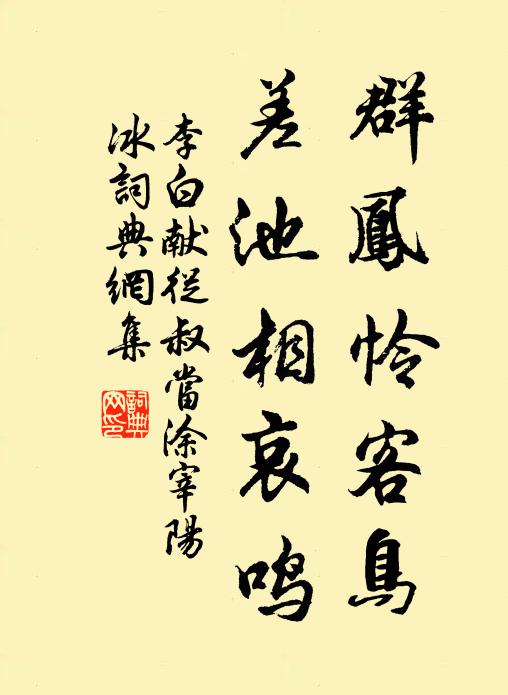 群鳳怜客鳥
差池相哀鳴
李白献從叔當涂宰陽
冰詞典網集
詞典
网印